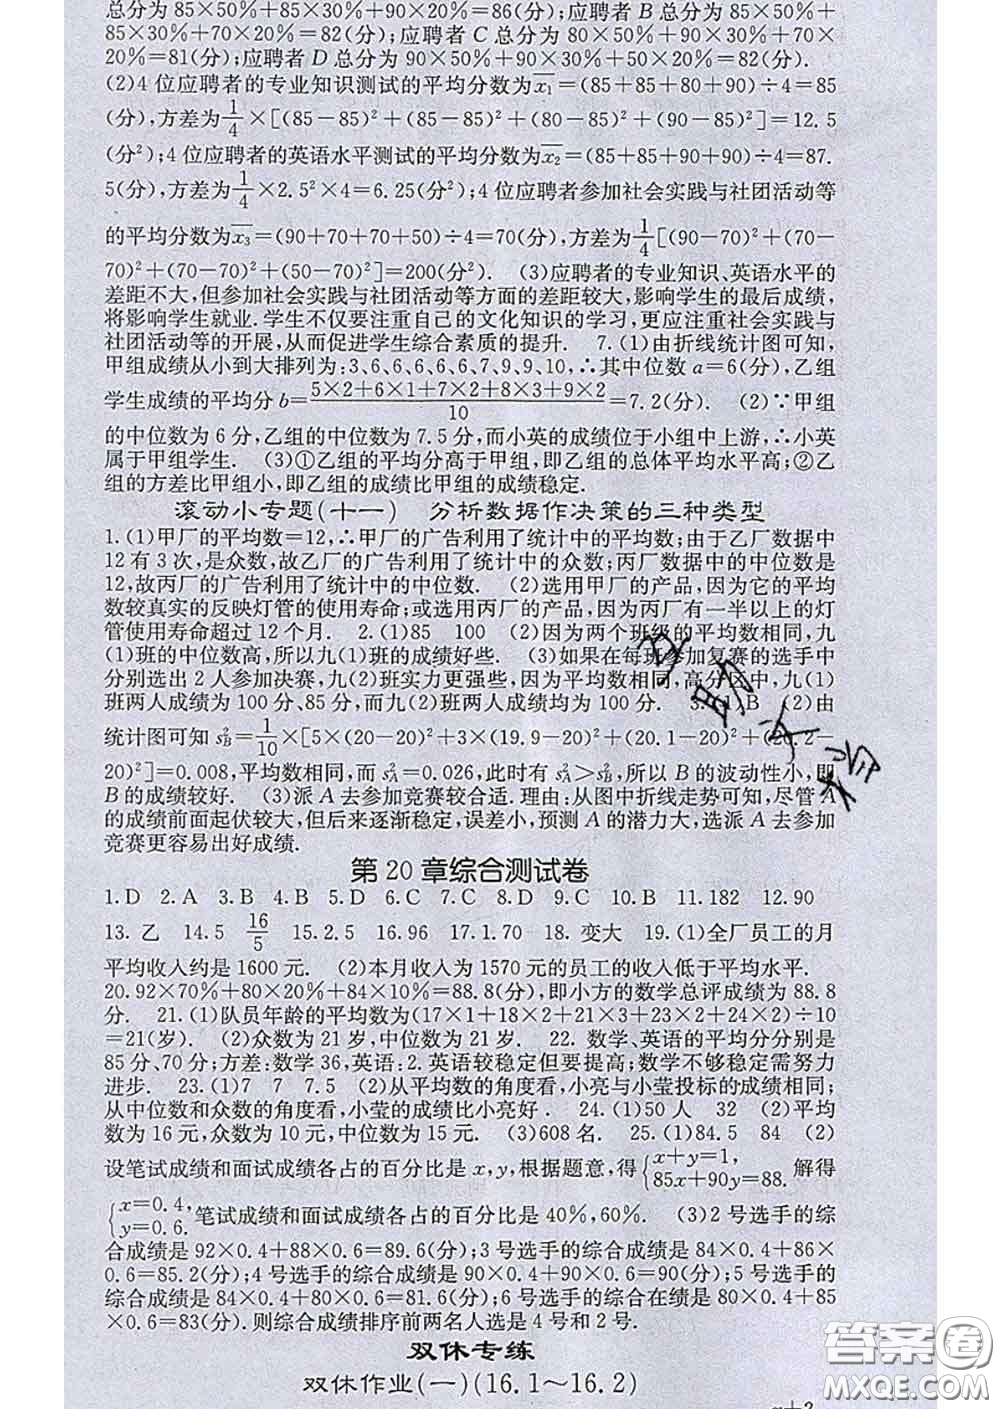 总分为 85×50%+85×30%+90×20%=86(分);应聘者 B 总分为 85×50%+
85×30%+70×20%=82(分);应聘者 C 总分为 80×50%+90×30%+70×
20%=81(分);应聘者 D 总分为 90×50%+90×30%+50×20%=82(分).
(2)4 位应聘者的专业知识测试的平均分数为x₁=(85+85+80+90)÷4=85
(分),方差为1/4×[(85-85)²+(85-85)²+(80-85)²+(90-85)²]=12.5
(分²);4 位应聘者的英语水平测试的平均分数为x₂=(85+85+90+90)÷4=87.
5(分),方差为1/4×2.5²×4=6.25(分²);4 位应聘者参加社会实践与社团活动等
的平均分数为x₃=(90+70+70+50)÷4=70(分),方差为1/4[(90-70)²+(70-
70)²+(70-70)²+(50-70)²]=200(分²). (3)应聘者的专业知识、英语水平的
差距不大,但参加社会实践与社团活动等方面的差距较大,影响学生的最后成绩,
将影响学生就业.学生不仅要注重自己的文化知识的学习,更应注重社会实践与
社团活动等的开展,从而促进学生综合素质的提升. 7.(1)由折线统计图可知,
甲组成绩从小到大排列为:3、6、6、6、6、6、7、9、9、10,∴其中位数 a=6(分),乙组
学生成绩的平均分 b=(5×2+6×1+7×2+8×3+9×2)/10=7.2(分). (2)∵甲组
的中位数为 6 分,乙组的中位数为 7.5 分,而小英的成绩位于小组中上游,∴小英
属于甲组学生. (3)①乙组的平均分高于甲组,即乙组的总体平均水平高;②乙
组的方差比甲组小,即乙组的成绩比甲组的成绩稳定.
滚动小专题(十一) 分析数据作决策的三种类型
1.(1)甲厂的平均数=12,∴甲厂的广告利用了统计中的平均数;由于乙厂数据中
12 有 3 次,是众数,故乙厂的广告利用了统计中的众数;丙厂数据中的中位数是
12,故丙厂的广告利用了统计中的中位数. (2)选用甲厂的产品,因为它的平均
数较真实的反映灯管的使用寿命;或选用丙厂的产品,因为丙厂有一半以上的灯
管使用寿命超过 12 个月. 2.(1)85 100 (2)因为两个班级的平均数相同,九
(1)班的中位数高,所以九(1)班的成绩好些. (3)如果在每班参加复赛的选手中
分别选出 2 人参加决赛,九(2)班实力更强些,因为平均数相同,高分区中,九(1)
班两人成绩为 100 分、85 分,而九(2)班两人成绩均为 100 分. 3.(1)B (2)由
统计图可知 s²B=1/10×[5×(20-20)²+3×(19.9-20)²+(20.1-20)²+(20.2-
20)²]=0.008,平均数相同,而 s²A=0.026,此时有 s²A>s²B,所以 B 的波动性小,即
B 的成绩较好. (3)派 A 去参加竞赛较合适.理由:从图中折线走势可知,尽管 A
的成绩前面起伏较大,但后来逐渐稳定,误差小,预测 A 的潜力大,选派 A 去参加
竞赛更容易出好成绩.
第 20 章综合测试卷
1.D 2.A 3.B 4.B 5.D 6.C 7.C 8.D 9.C 10.B 11.182 12.90
13. 乙 14.5 16/5 15.2.5 16.96 17.1.70 18. 变大 19.(1)全厂员工的月
平均收入约是 1600 元. (2)本月收入为 1570 元的员工的收入低于平均水平.
20.92×70%+80×20%+84×10%=88.8(分),即小方的数学总评成绩为 88.8
分. 21.(1)队员年龄的平均数为(17×1+18×2+21×3+23×2+24×2)÷10
=21(岁). (2)众数为 21 岁,中位数为 21 岁. 22. 数学、英语的平均分分别是
85 分、70 分;方差:数学 36,英语:2.英语较稳定但要提高;数学不够稳定需努力
进步. 23.(1)7 7 7.5 (2)从平均数的角度看,小亮与小莹投标的成绩相同;
从中位数和众数的角度看,小莹的成绩比小亮好. 24.(1)50 人 32 (2)平均
数为 16 元,众数为 10 元,中位数为 15 元. (3)608 名. 25.(1)84.5 84 (2)
设笔试成绩和面试成绩各占的百分比是 x,y,根据题意,得{x+y=1, 85x+90y=88. 解得
{x=0.4, y=0.6. 笔试成绩和面试成绩各占的百分比是 40%,60%. (3)2 号选手的综
合成绩是 92×0.4+88×0.6=89.6(分);3 号选手的综合成绩是 84×0.4+86×
0.6=85.2(分);4 号选手的综合成绩是 90×0.4+90×0.6=90(分);5 号选手的
综合成绩是 84×0.4+80×0.6=81.6(分);6 号选手的综合在绩是 80×0.4+85
×0.6=83(分).则综合成绩排序前两名人选是 4 号和 2 号.
双休专练
双休作业(一)(16.1～16.2)
答案圈
MXQE.COM